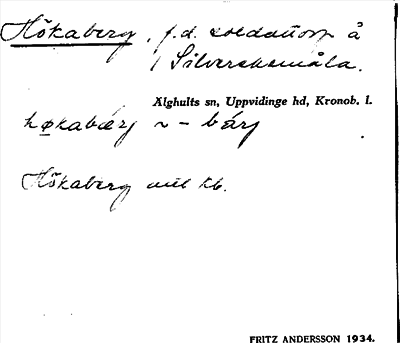 Hökaberg, f.d. soldattorp å
Silverekemåla.
Älghults sn, Uppvidinge hd, Kronob. l.
høkabærj ~ - bárj
Hökaberg enl kb.
FRITZ ANDERSSON 1934.